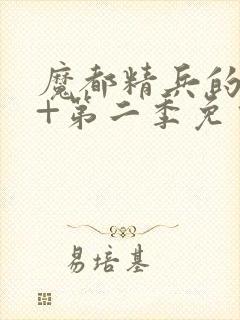 魔都精兵的
+第二季免
易培基